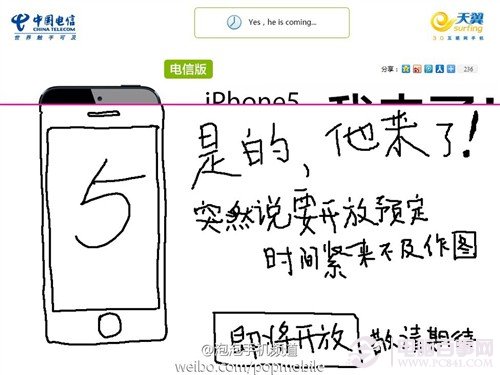 中国电信
CHINA TELECOM
世界触手可及
Yes , he is coming...
天翼
surfing
3G互联网手机
电信版
分享：
236
iPhone5
我来了!
5
是的，他来了!
突然说要开放预定
时间紧来不及作图
即将开放 敬请期待
@泡泡手机频道
weibo.com/popmobile
电脑百事网
WWW.PC841.COM